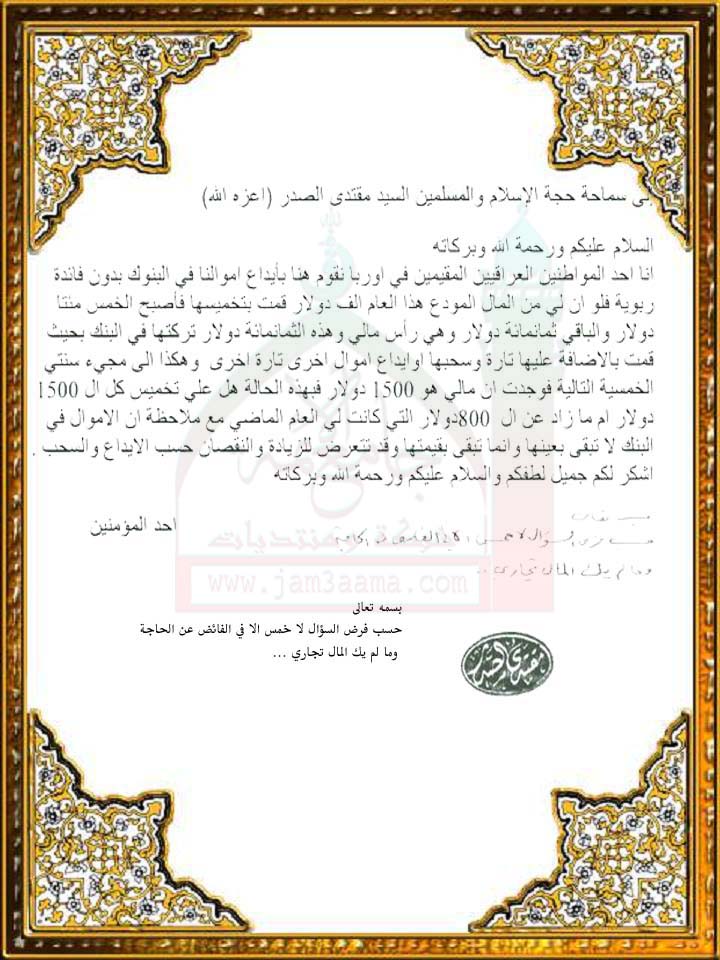 لى سماحة حجة الإسلام والمسلمين السيد مقتدى الصدر (اعزه الله)
السلام عليكم ورحمة الله وبركاته
انا احد المواطنين العراقيين المقيمين في اوربا نقوم هنا بأيداع اموالنا في البنوك بدون فائدة
ربوية فلو ان لي من المال المودع هذا العام الف دولار قمت بتخميسها فأصبح الخمس مئتا
دولار والباقي ثمانمائة دولار وهي رأس مالي وهذه الثمانمائة دولار تركتها في البنك بحيث
قمت بالاضافة عليها تارة وسحبها اوايداع اموال اخرى تارة اخرى وهكذا الى مجيء سنتي
الخمسية التالية فوجدت ان مالي هو 1500 دولار فبهذه الحالة هل علي تخميس كل ال 1500
دولار ام ما زاد عن ال 800دولار التي كانت لي العام الماضي مع ملاحظة ان الاموال في
البنك لا تبقى بعينها وانما تبقى بقيمتها وقد تتعرض للزيادة والنقصان حسب الايداع والسحب .
اشكر لكم جميل لطفكم والسلام عليكم ورحمة الله وبركاته
احد المؤمنين
بسمه تعالى
حسب فرض السؤال لا خمس الا في الفائض عن الحاجة
وما لم يك المال تجاري ...
مقتدى الصدر
www.jam3aama.com